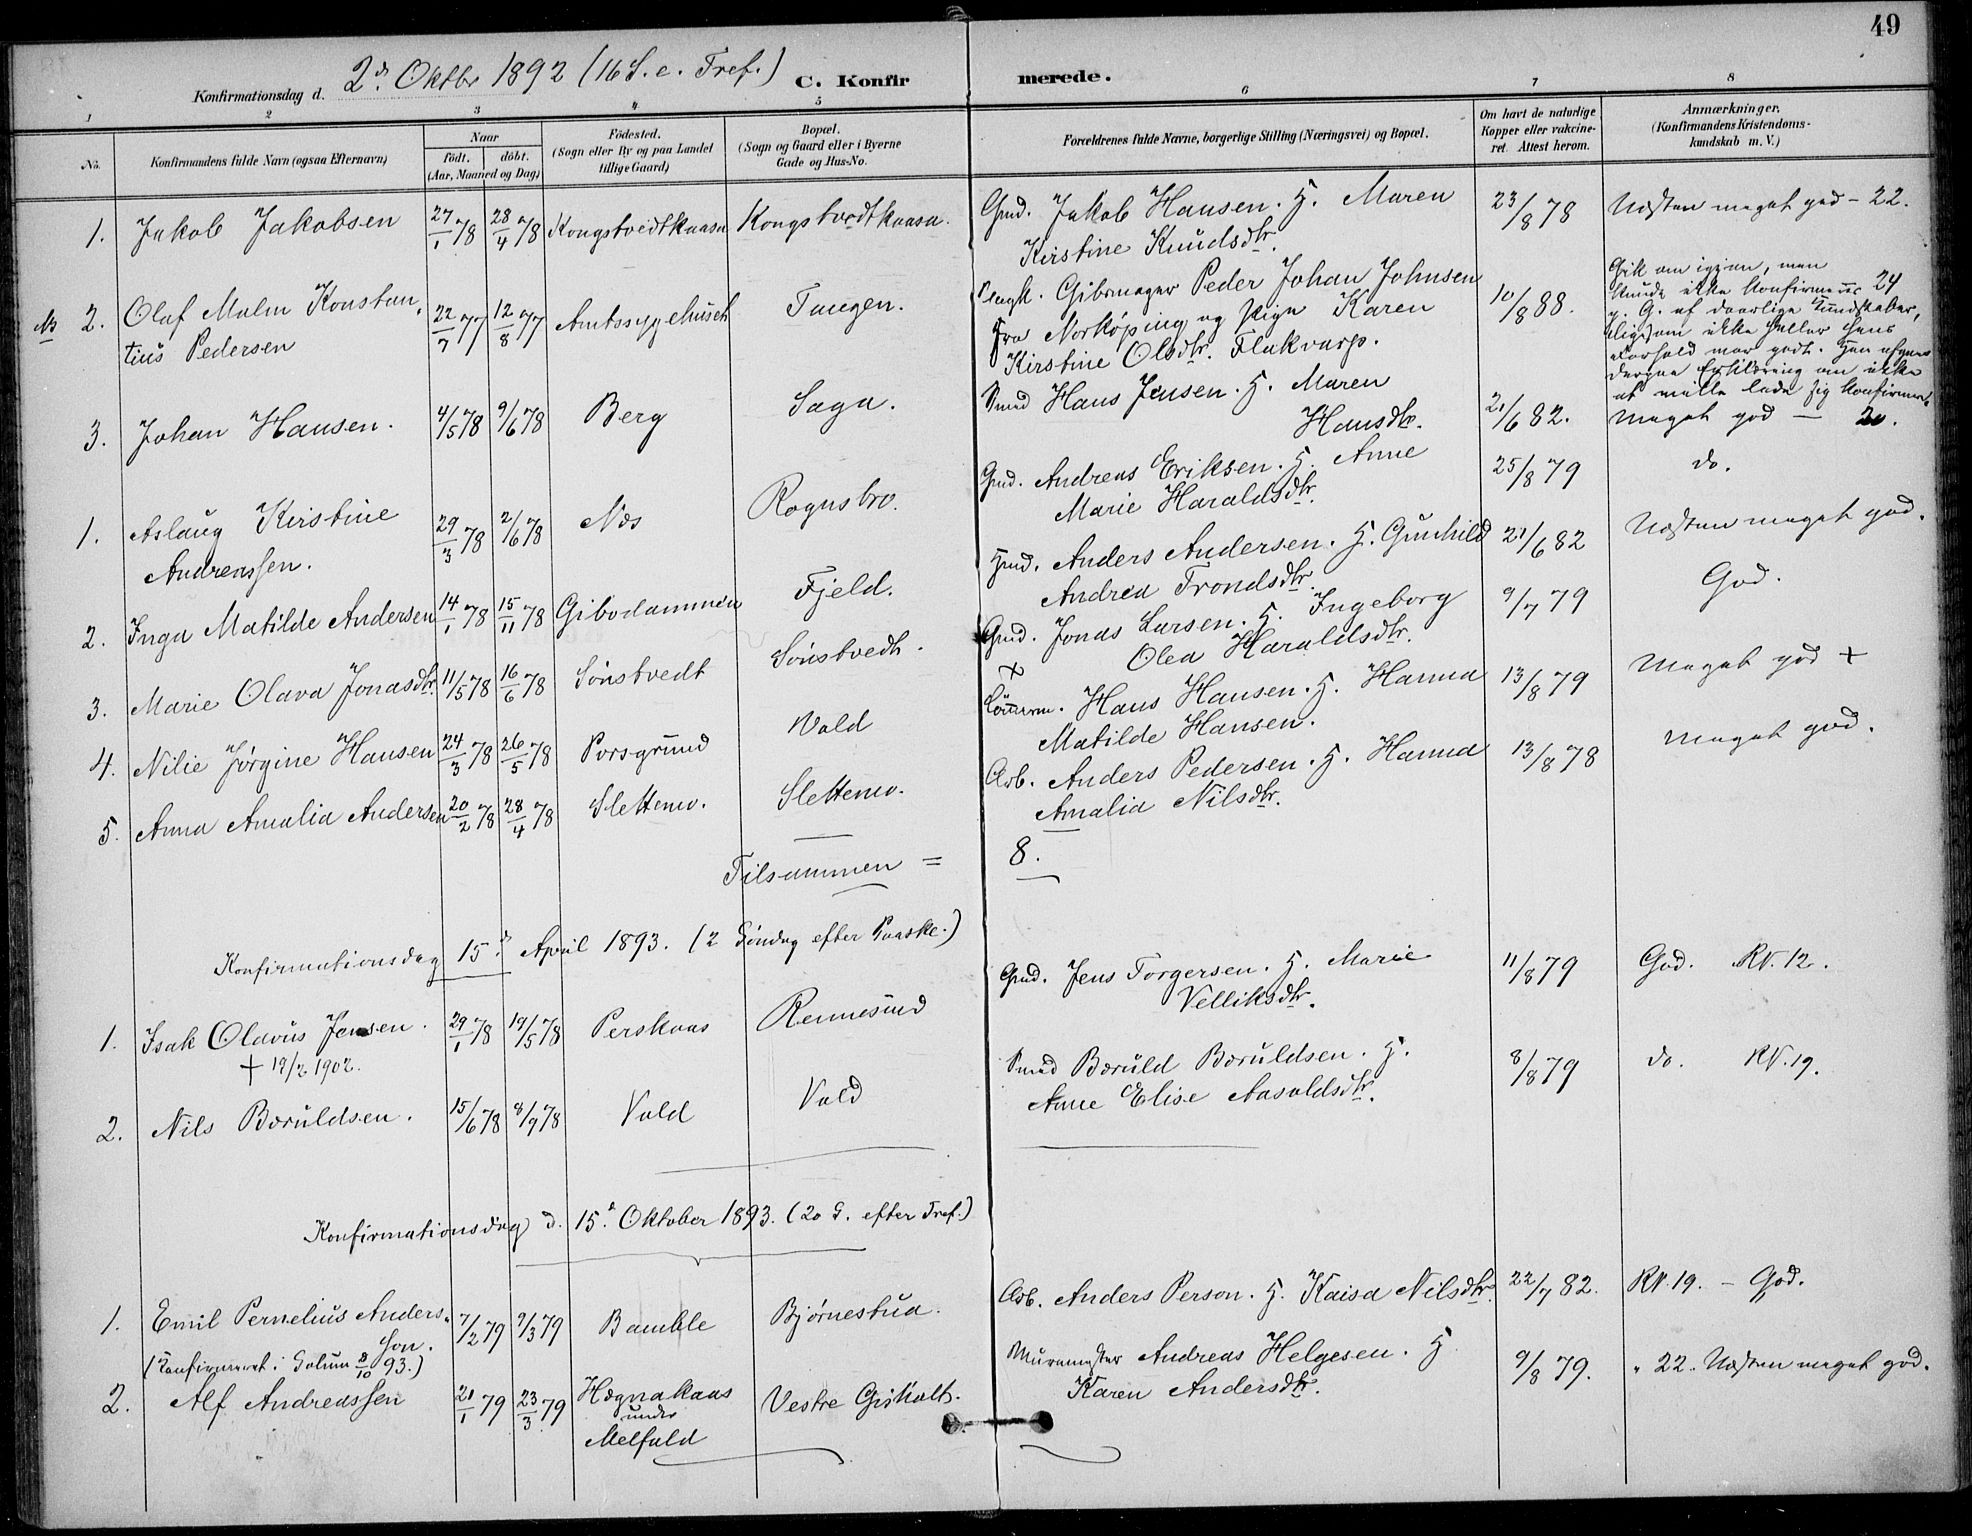 49
Konfirmationsdag d. 2d Oktbr 1892 (16 S. e. Tref.) C. Konfirmerede.
1 2 3 4 5 6 7 8
No. Konfirmandens fulde Navn (ogsaa Efternavn) Naar født. døbt. (Aar, Maaned og Dag) Fødested. (Sogn eller By og paa Landet tillige Gaard) Bopæl. (Sogn og Gaard eller i Byerne Gade og Hus-No. Forældrenes fulde Navne, borgerlige Stilling (Næringsvei) og Bopæl. Om havt de naturlige Kopper eller vakcineret. Attest herom. Anmærkninger. (Konfirmandens Kristendomskundskab m. V.)
1. Jakob Jakobsen 27/1 78 28/4 78 Kongstvedtkaasa Kongstvedtkaasa. Gmd. Jakob Hansen. H. Maren 23/8 78 Næsten meget god - 22.
Kirstine Knudsdtr.
2. Olaf Malm Konstan- 22/7 77 12/8 77 Amtssygehuset Tangen. Gibsmager Peder Johan Johnsen 10/8 88. Gik om igjen, men
tius Pedersen fra Norkøping og Pige Karen kunde ikke konfirmeres 24
Kirstine Olsdtr. Flakvarp. p. G. af daarlige Kundskaber,
ligesom ikke heller hans
Forhold var godt. Han afgav
derpaa Erklæring om ikke
at ville lade sig konfirmere.
3. Johan Hansen. 4/5 78 9/6 78 Berg Saga. Smed Hans Jensen. H. Maren 21/6 82. Meget god - 20.
Hansdtr.
1. Aslaug Kirstine 29/3 78 2/6 78 Næs Rognsbro. Gmd. Andreas Eriksen. H. Anne 25/8 79 do.
Andreassen. Marie Haraldsdtr.
2. Inga Matilde Andersen 14/1 78 15/11 78 Gibodammen Fjeld. Hmd. Anders Andersen. H. Gunhild 21/6 82 Næsten meget god.
Andrea Trondsdtr.
3. Marie Olava Jonasdtr. 11/5 78 16/6 78 Sønstvedt Sønstvedt. Gmd. Jonas Larsen. H. Ingeborg 9/7 79 God.
+ Olea Haraldsdtr.
4. Nilie Jørgine Hansen 24/3 78 26/5 78 Porsgrund Vald Hans Hansen. H. Hanna 13/8 79 Meget god +
Matilde Hansen.
5. Anna Amalia Andersen 20/2 78 28/4 78 Slettemo. Slettemo. Arb. Anders Pedersen. H. Hanna 13/8 78 Meget god.
Amalia Nilsdtr.
Tilsammen = 8.
Konfirmationsdag 15d April 1893. (2 Søndag efter Paaske.)
1. Isak Olavus Jensen. 29/1 78 19/5 78 Perskaas Rennesund Gmd. Jens Torgersen. H. Marie 11/8 79 God. RN. 12.
+ 19/2 1902. Velliksdtr.
2. Nils Bæruldsen. 15/6 78 8/9 78 Vald Vald Smed Bæruld Bæruldsen. H. 8/8 79 do. RN. 19.
Anne Elise Aasoldsdtr.
Konfirmationsdag d. 15d Oktober 1893. (20 S. efter Tref.)
1. Emil Pernelius Anders- 7/2 79 9/3 79 Bamble Bjørnestua. Arb. Anders Person. H. Kaisa Nilsdtr. 22/7 82. RN. 19. - God.
son.
(Konfirmeret i Solum 8/10 93.)
2. Alf Andreassen 21/1 79 23/3 79 Hægnakaas Vestre Grihalt. Muremester Andreas Helgesen. H 9/8 79. " 22. Næsten meget god.
under Karen Andersdtr.
Melfald